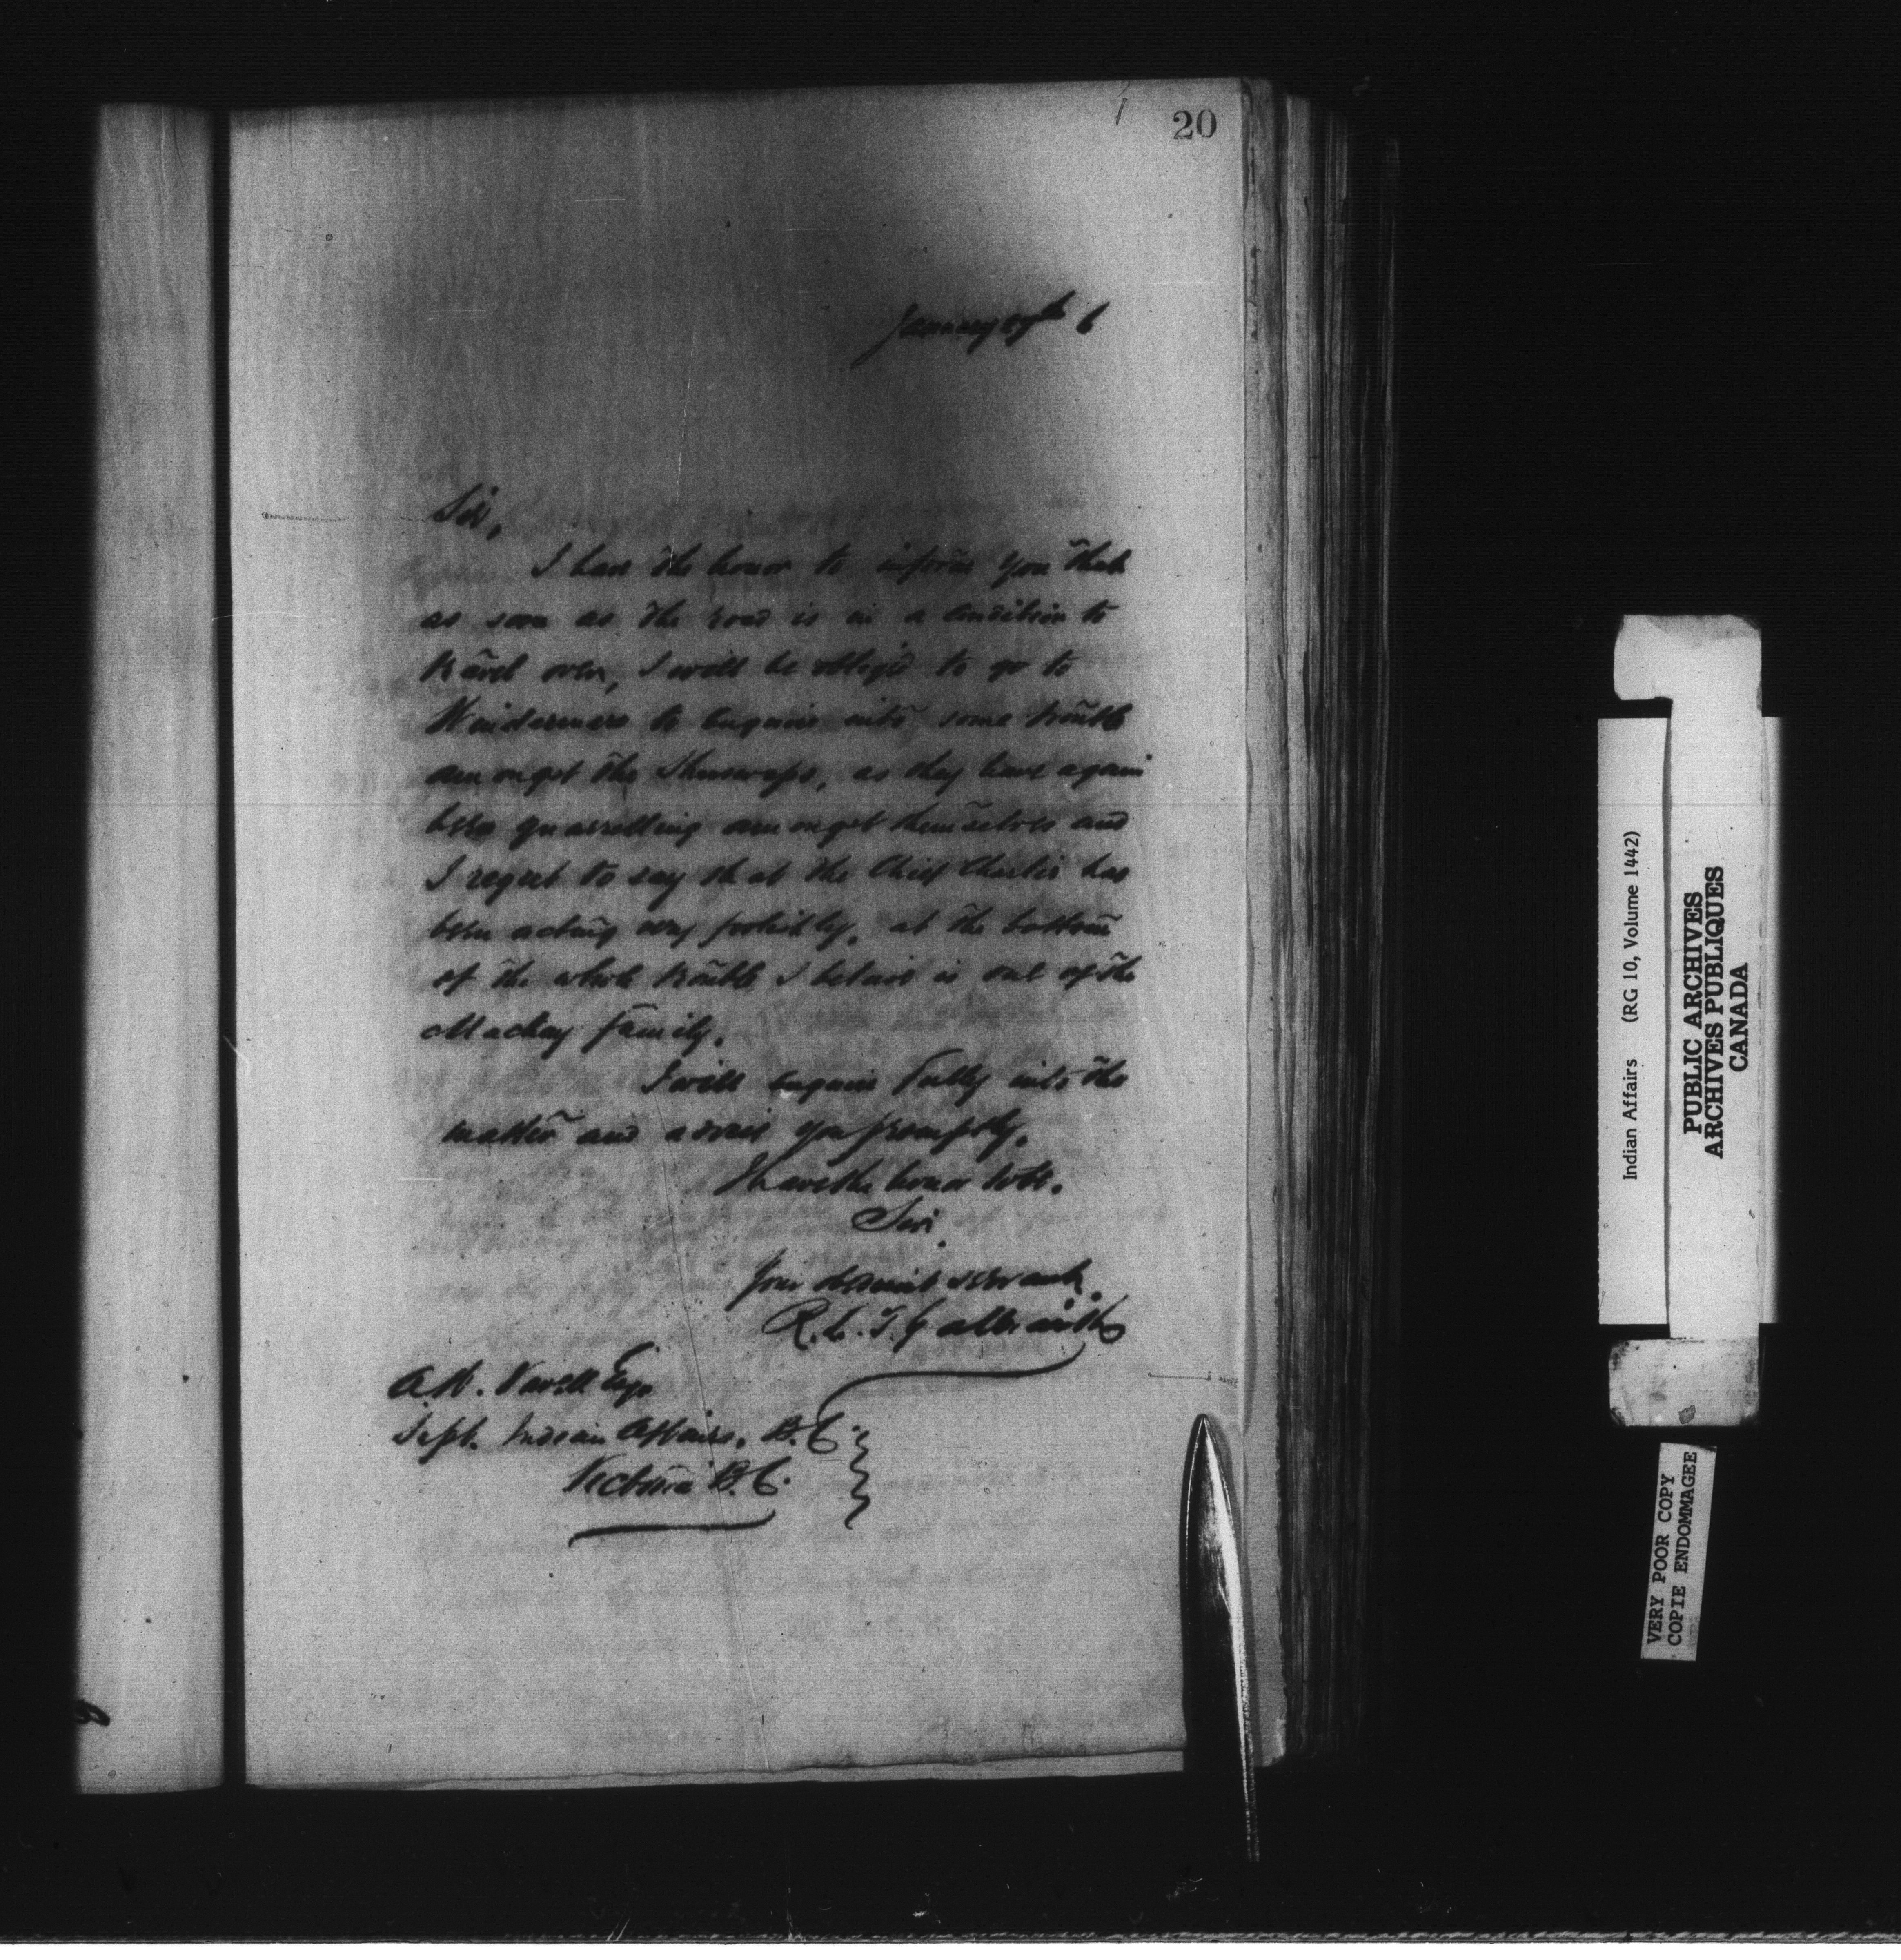 20
January 6
Sir,
I have the honor to inform you that
as soon as the road is in a condition to
travel over, I will be obliged to go to
Windermere to enquire into some trouble
amongst the Shuswaps, as they have again
been quarrelling amongst themselves and
I regret to say that the Chief Charles has
been acting very foolishly, at the bottom
of the whole trouble I believe is one of the
Mackay family.
I will enquire fully into the
matter and advise you promptly.
I have the honor to be.
Sir.
Your obedient servant.
R. L. T. Galbraith
A. W. Vowell Esqr
Supt. Indian Affairs. B.C.
Victoria B.C.
Indian Affairs (RG 10, Volume 1442)
PUBLIC ARCHIVES
ARCHIVES PUBLIQUES
CANADA
VERY POOR COPY
COPIE ENDOMMAGEE